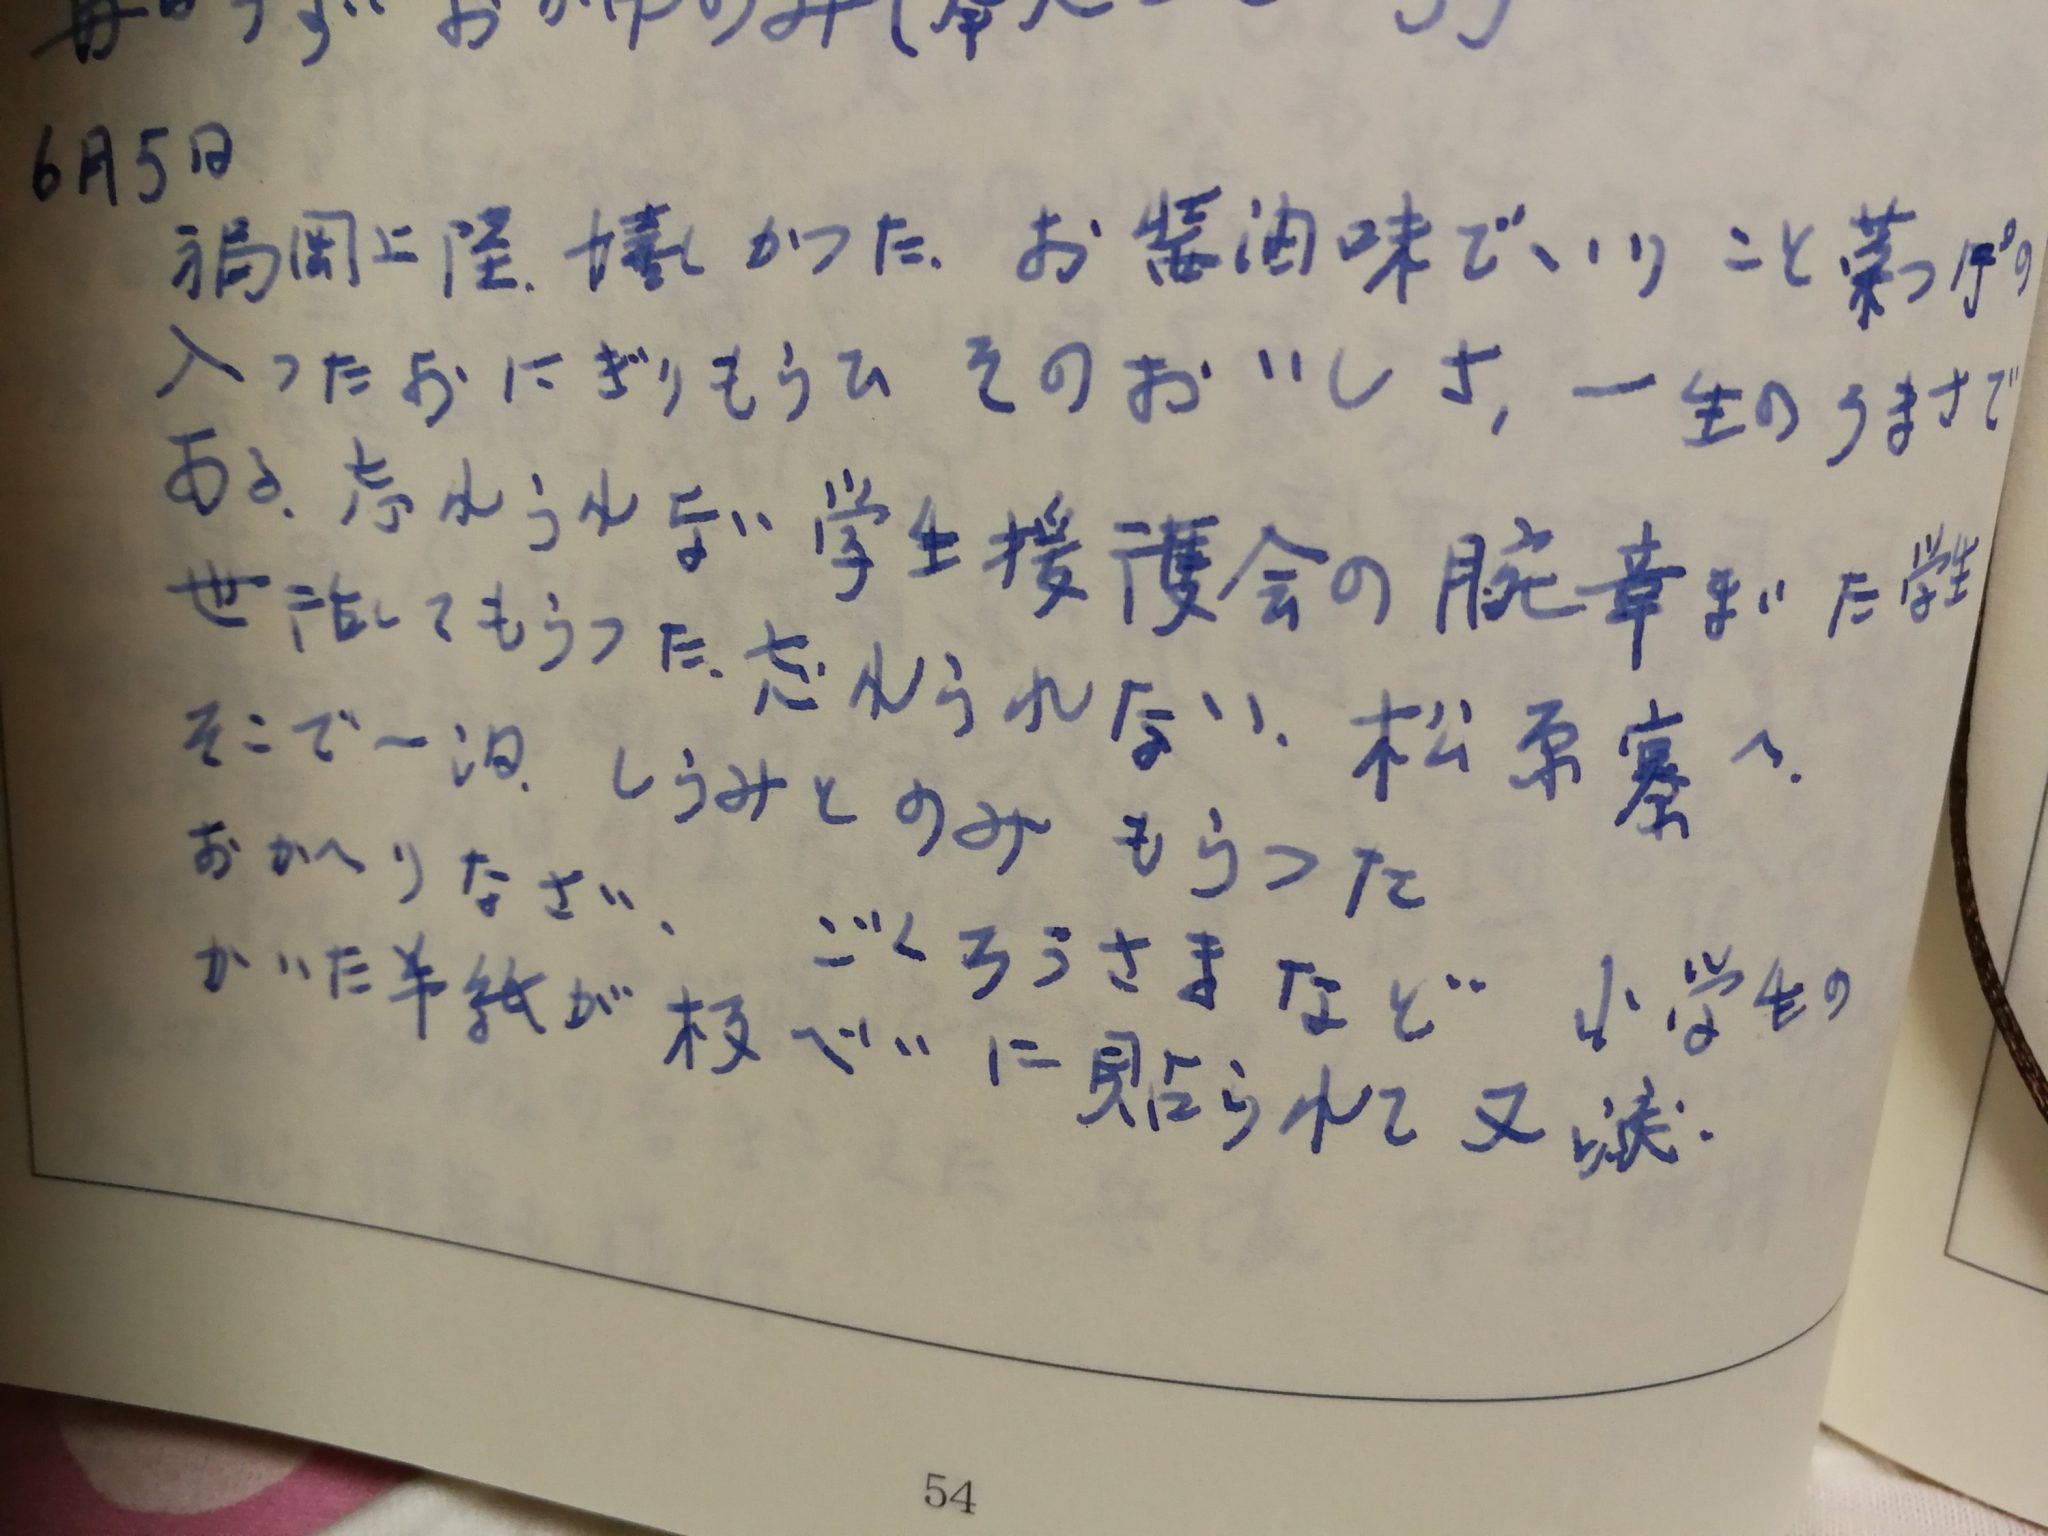 6月5日
福岡上陸.嬉しかつた.お醤油味でいりこと菜っげの
入ったおにぎりもらひそのおいしさ,一生のうまさで
ある.忘れられない学生援護会の腕章まいた学生
世話してもらった.忘れられない.松原寮へ.
そこで一泊.しらみとのみもらった
おかへりなさい、ごくろうさまなど小学生の
かいた半紙が板べいに貼られて又涙.
54